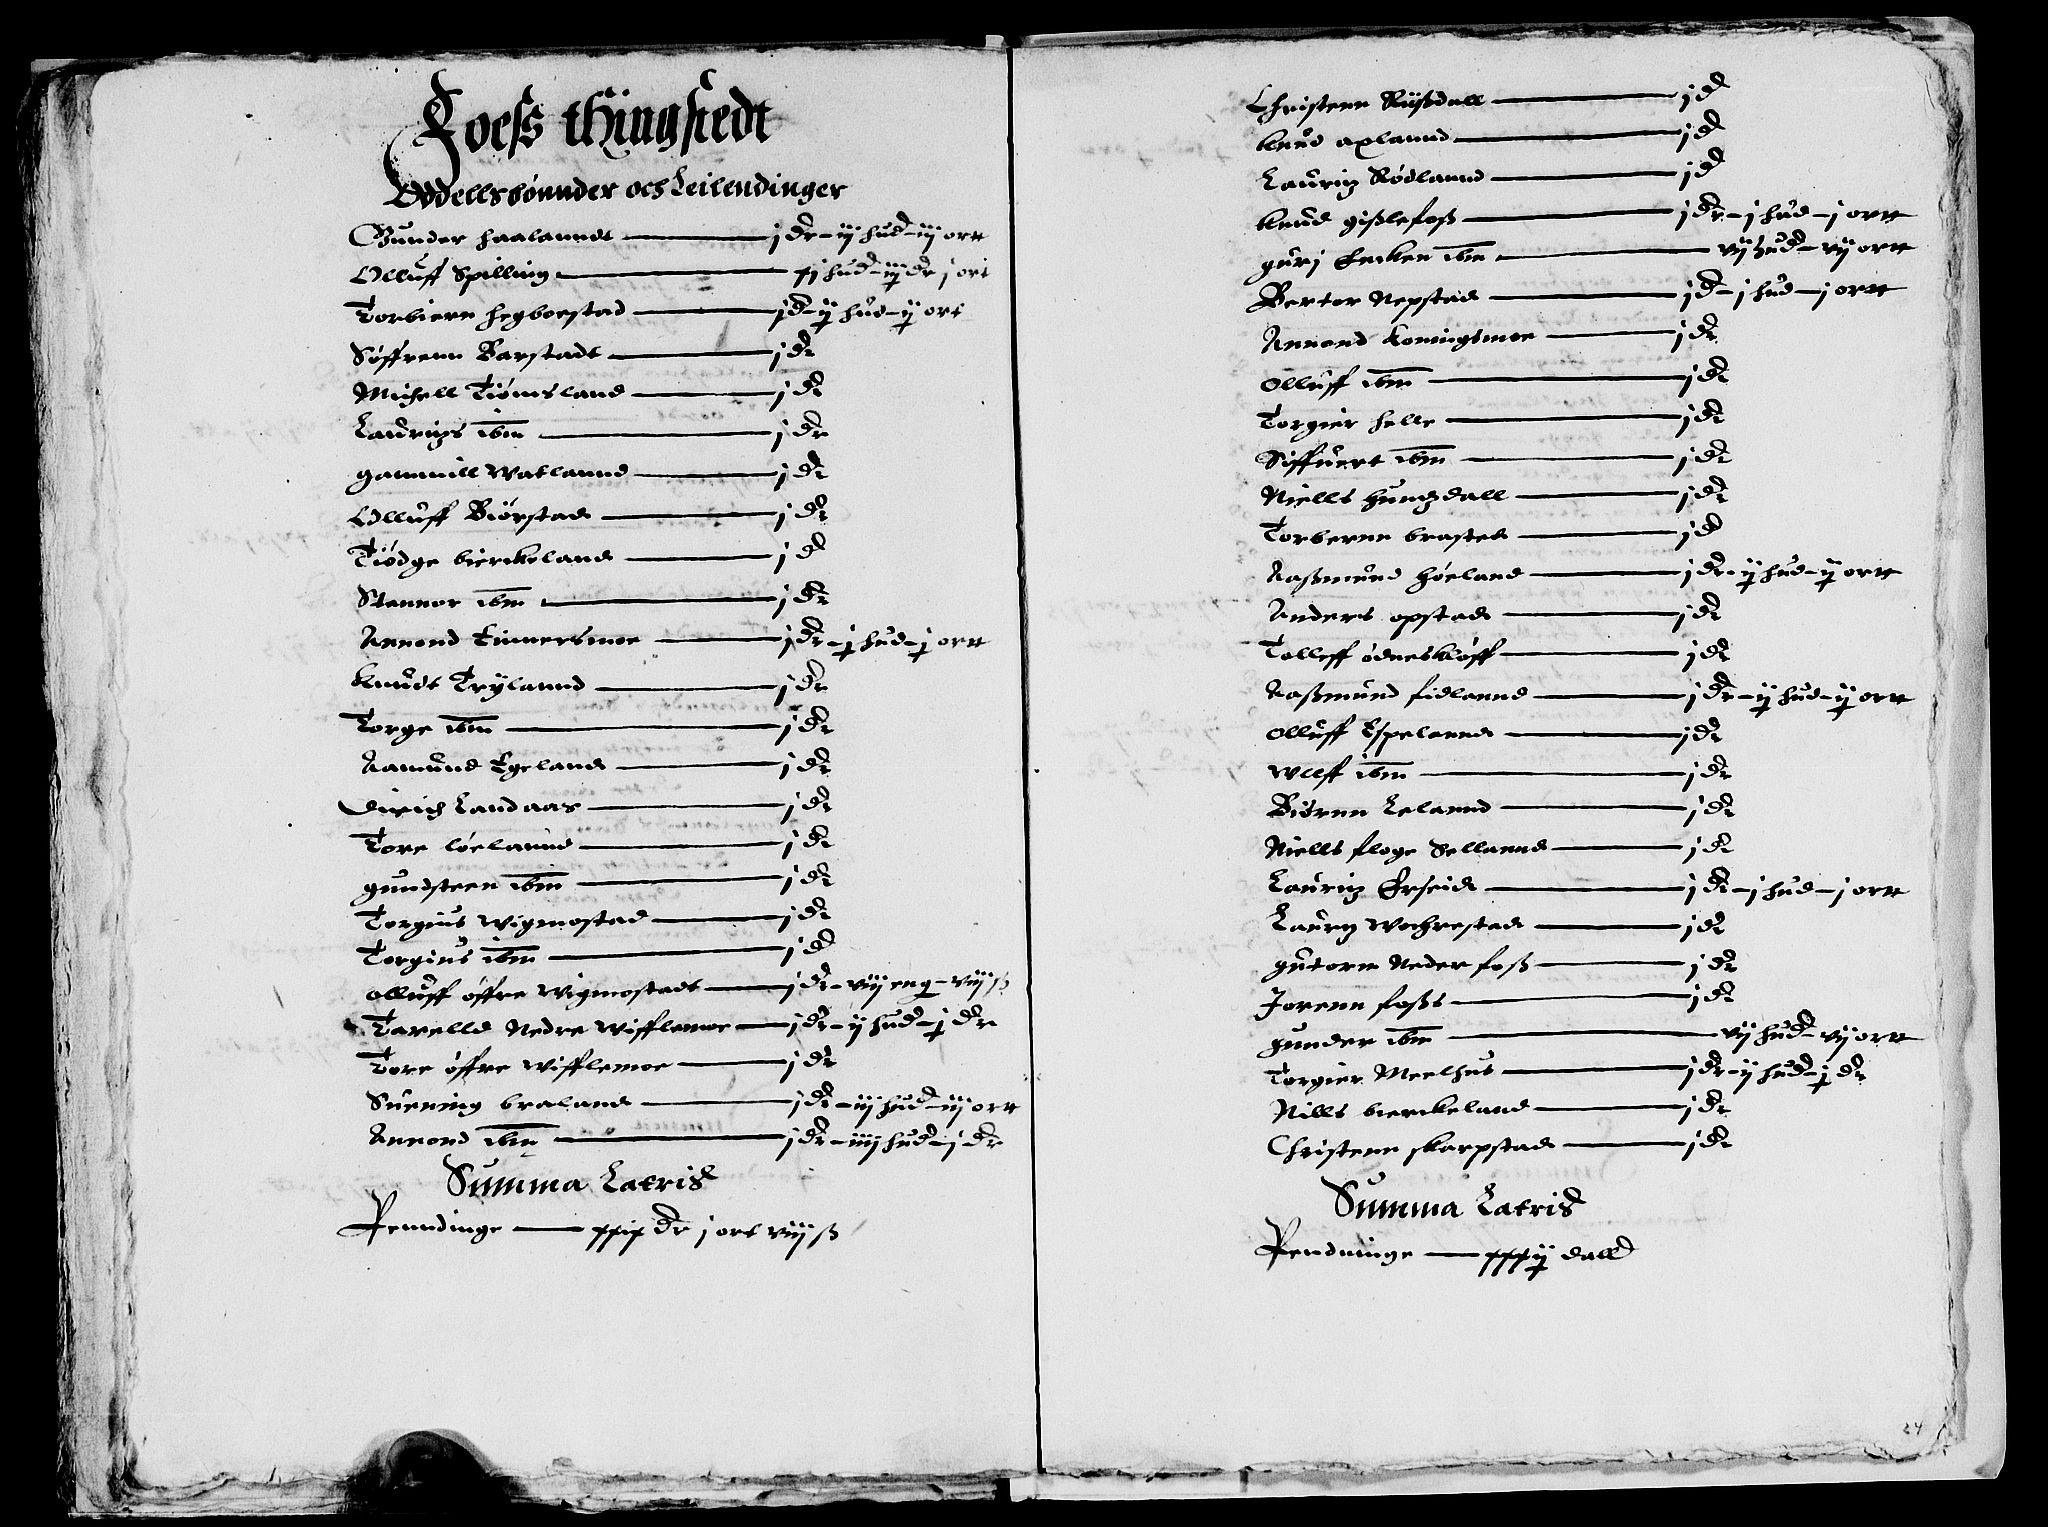 Foess thingstedt
Oddellsbønnder och Leilendinger
Gunder Haalanndt — j dr - ij hud - iij ort
Olluff Spilling — xj hud - iij dr j ort
Torbiern Hegboestad — j d - ij hud - ij ort
Søffrenn Barstadt — j dr
Michell Tiømsland — j dr
Lauritzs ibm — j dr
gammill Watlannd — j dr
Olluff Biørstad — j dr
Tiødge bierckeland — j d
Stennor ibm — j dr
Annond Timersmoe — j dr - j hud - j ort
Knudt Trylannd — j dr
Torge ibm — j dr
Aamund Egeland — j dr
Dirich Landaas — j dr
Tore løelannd — j dr
gundsteen ibm — j dr
Torgius Wigmostad — j dr
Torgius ibm — j d
olluff øffre Wigmostadt — j dr - viij eng - viij ß
Tarelld Nedre Wifflemoe — j dr - ij hud - j dr
Tore øffre Wifflemoe — j dr
Suening braland — j dr - iij hud - iij ort
Annond ibm — j dr - iiij hud - j dr
Summa Latris
Penndinge — xxix dr j ort viij ß
Christenn Riißdall — j d
knud oxlannd — j d
Lauritz Rødlannd — j d
knud gißlefoß — j dr - j hud - j ort
guri Encken ibm — vij hud - vij ort
Berter Nepstad — j d - j hud - j ort
Annond Koningsmoe — j dr
olluff ibm — j dr
Torgier Helle — j dr
Siffuert ibm — j dr
Niells Hunsdall — j dr
Torbernn brasted — j d
Aaßmund Høeland — j dr - ij hud - ij ort
Anders opstad — j dr
Tolleff ødneskløff — j dr
Aaßmund fidlannd — j dr - ij hud - ij ort
olluff Espelannd — j dr
Wllff ibm — j dr
Biørnn Lelannd — j dr
Niells floge Sellannd — j dr
Lauritz Erseid — j dr - j hud - j ort
Lauritz Wochrestad — j dr
gutorm Nederfoß — j dr
Jorenn foßs — j dr
gunder ibm — vij hud - vij ort
Torgier Meelhus — j dr - ij hud - j dr
Nills bierckeland — j dr
Christenn skarpstad — j dr
Summa Latris
Pendninge — xxxij dall
24